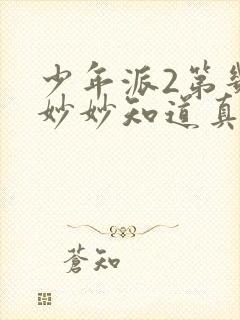 少年派2第
妙妙知道真
蒼知